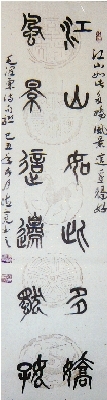 江山如此多嬌
風景這邊獨好
江山如此多嬌風景這邊獨好
毛澤東詩句